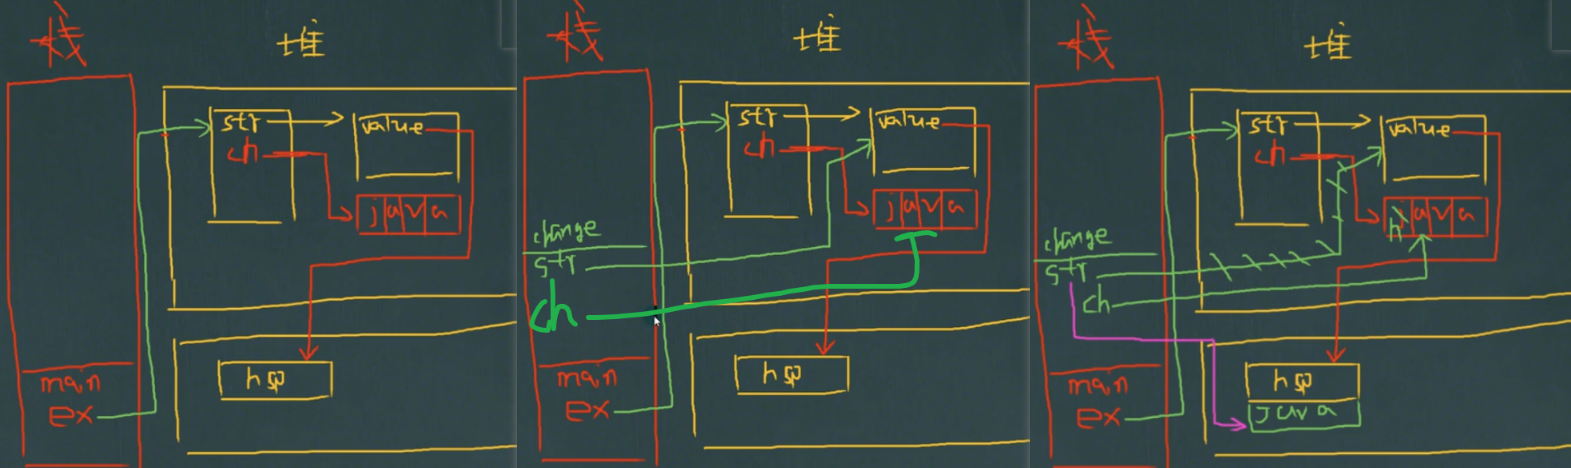 栈
堆
str
ch
value
java
hsp
main
ex
栈
堆
str
ch
value
java
change
str
ch
hsp
main
ex
栈
堆
str
ch
value
h
java
change
str
ch
hsp
java
main
ex